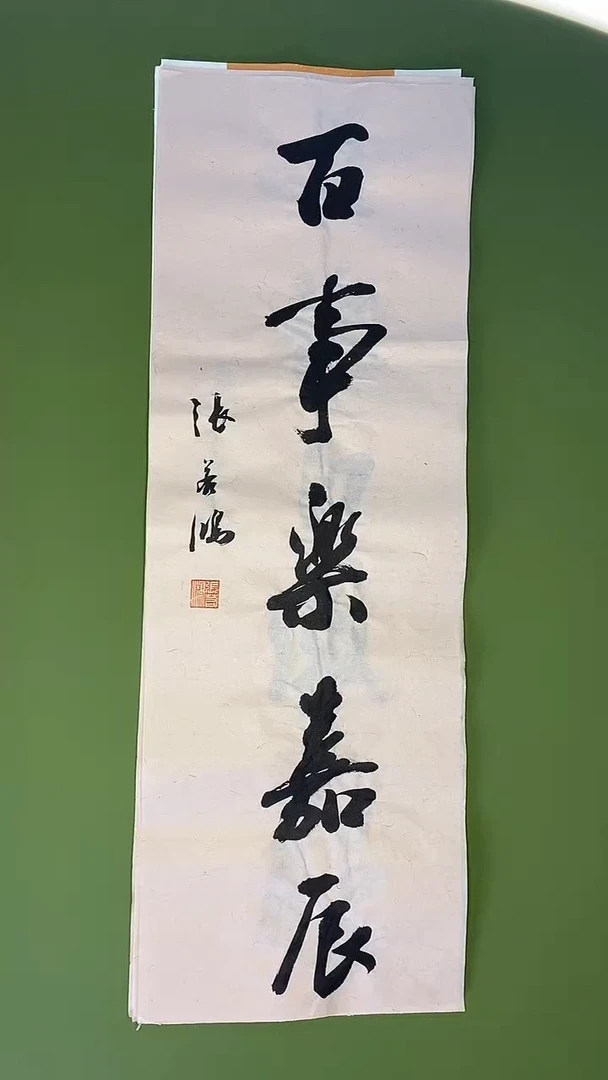 百事樂嘉辰
張若鴻